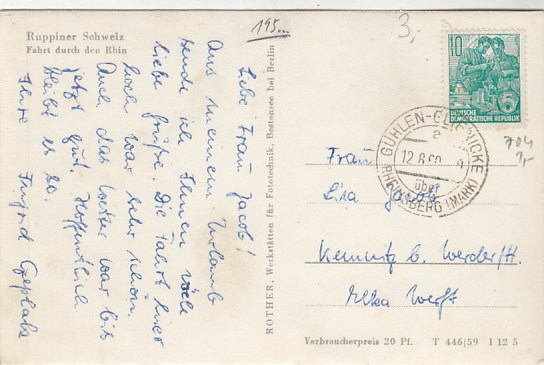 Ruppiner Schweiz
Fahrt durch den Rhin
195...
3,-
Liebe Frau Jacob!
Aus meinem Urlaub
sende ich Ihnen viele
liebe Grüße. Die Fahrt hier
hoch war sehr schön.
Auch das Wetter war bis
jetzt gut. Hoffentlich
bleibt es so.
Ihre Ingrid
ROTHER, Werkstätten für Fototechnik, Bestensee bei Berlin
10
DEUTSCHE
DEMOKRATISCHE REPUBLIK
GÜHLEN-GLIENICKE
a
12.8.60
über
RHEINSBERG (MARK)
704
1,-
Frau
Lisa Jacob
Kemnitz b. Werder/H.
Verbraucherpreis 20 Pf. T 446/59 I 12 5